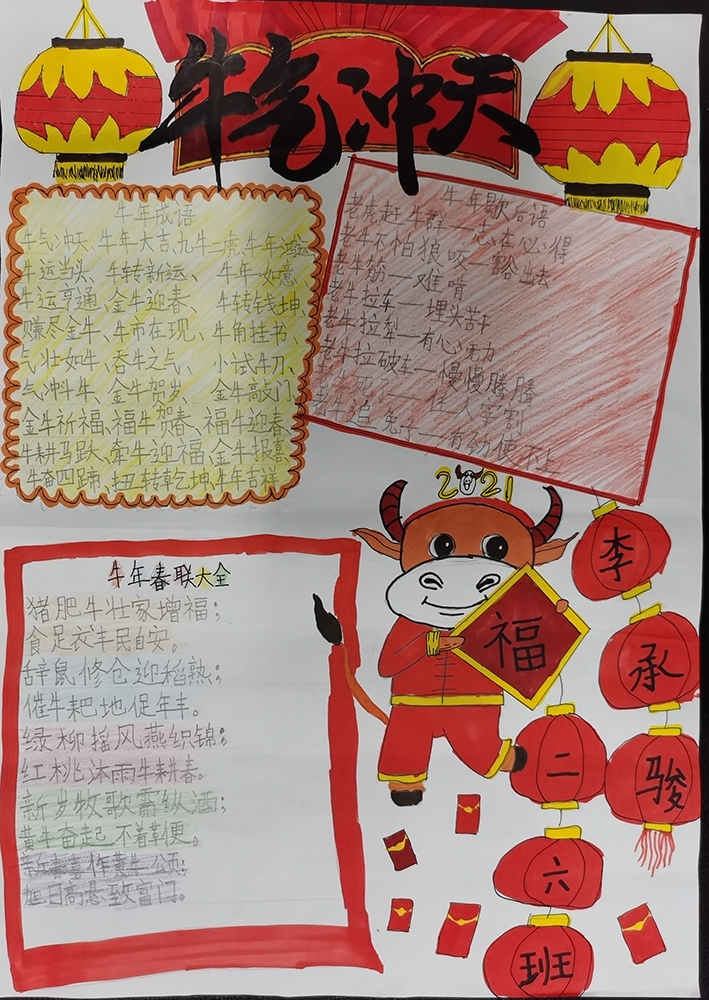 牛气冲天
牛年成语
牛气冲天、牛年大吉、九牛二虎、牛年鸿运
牛运当头、牛转新运、牛年如意
牛运亨通、金牛迎春、牛转钱坤、
赚尽金牛、牛市在现、牛角挂书
气壮如牛、吞牛之气、小试牛刀、
气冲斗牛、金牛贺岁、金牛敲门、
金牛祈福、福牛贺春、福牛迎春
牛耕马跃、牵牛迎福、金牛报喜
牛奋四蹄、扭转乾坤、牛年吉祥
牛年歇后语
老虎赶牛群——志在必得
老牛不怕狼咬——豁出去
老牛筋——难啃
老牛拉车——埋头苦干
老牛拉犁——有心无力
老牛拉破车——慢慢腾腾
死了——任人宰割
牛追兔子——有劲使不上
牛年春联大全
猪肥牛壮家增福；
食足衣丰民自安。
辞鼠修仓迎稻熟；
催牛耙地促年丰。
绿柳摇风燕织锦；
红桃沐雨牛耕春。
新岁牧歌霸纵酒；
黄牛奋起不着鞭。
新春喜作黄牛颂；
旭日高悬致富门。
2021
福
李
承
骏
二
六
班